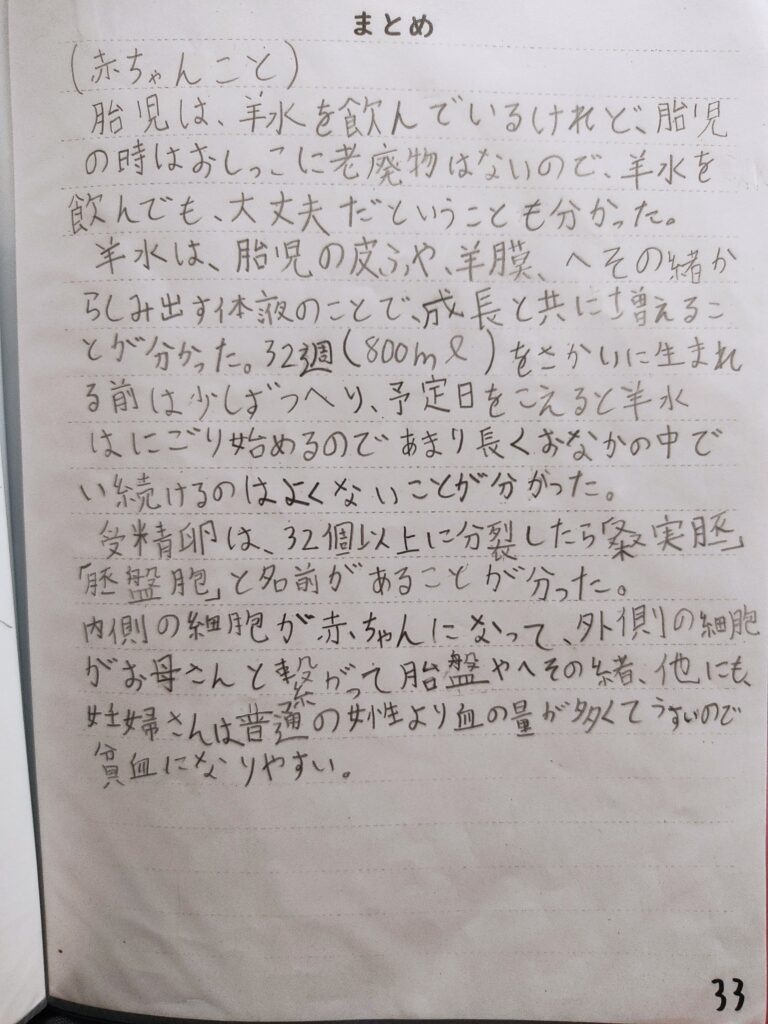 まとめ
(赤ちゃんこと)
胎児は、羊水を飲んでいるけれど、胎児
の時はおしっこに老廃物はないので、羊水を
飲んでも、大丈夫だということも分かった。
羊水は、胎児の皮ふや、羊膜、へその緒か
らしみ出す体液のことで、成長と共に増えるこ
とが分かった。32週(800mℓ)をさかいに生まれ
る前は少しずつへり、予定日をこえると羊水
はにごり始めるのであまり長くおなかの中で
い続けるのはよくないことが分かった。
受精卵は、32個以上に分裂したら「桑実胚」
「胚盤胞」と名前があることが分った。
内側の細胞が赤ちゃんになって、外側の細胞
がお母さんと繋がって胎盤やへその緒、他にも、
妊婦さんは普通の女性より血の量が多くてうすいので
貧血になりやすい。
33